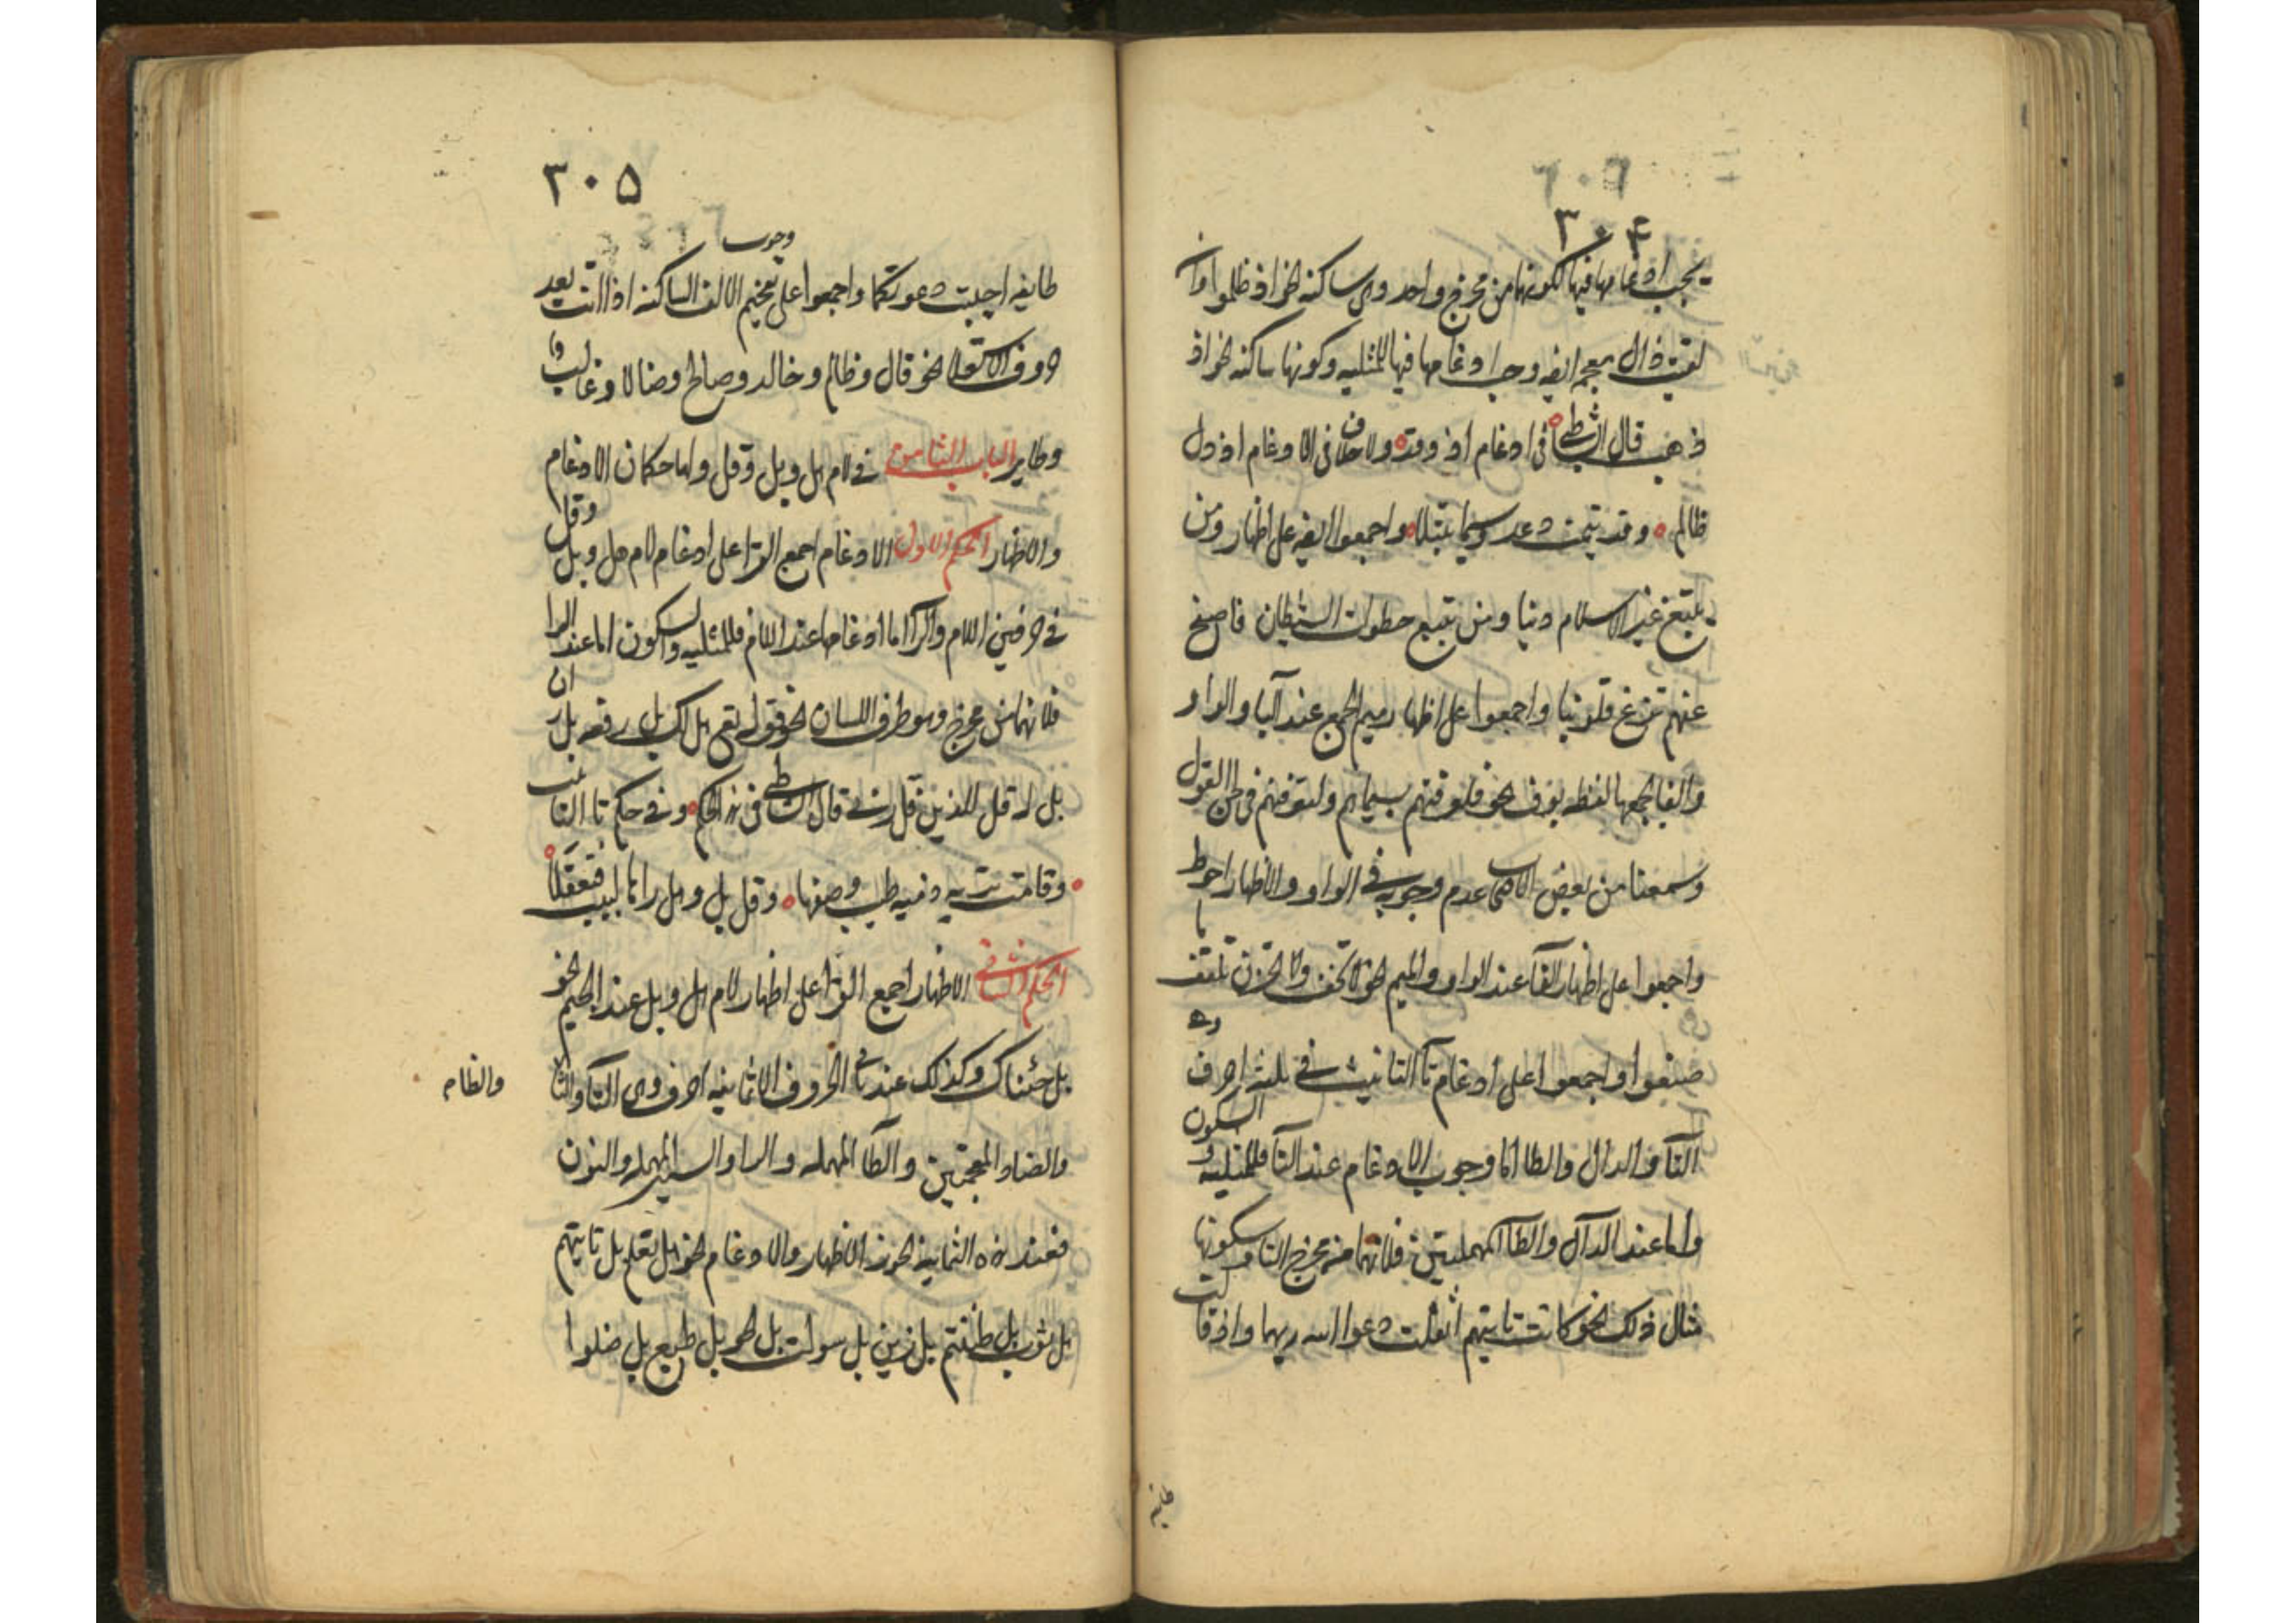 ٣٠۴
يجب ادغامها فيها لكونها من مخرج واحد وهى ساكنه نحو اذ ظلموا وان
لقيت ذال معجم ايضه وجب ادغامها فيها للمثليه وكونها ساكنه نحو اذ
ذهب قال الشاطبى فى ادغام اذ وقد ولا خلاف فى الادغام اذ ذل
ظالم وقد تيمت دعد وسيما تبتلا واجمعوا ايضه على اظهار ومن
يبتغ غير الاسلام دينا ومن يتبع خطوات الشيطان فاصفح
عنهم تزغ قلوبنا واجمعوا على اظهار ميم الجمع عند اليا والواو
والفا يجمعها لفظه يوف نحو فلعرفتهم بسيماهم ولتعرفنهم فى لحن القول
وسمعنا من بعض عدم وجوبه فى الواو والاظهار احوط
واجمعوا على اظهار الفا عند الواو والميم نحو لا تخف ولا تحزن تلقف ما
صنعوا واجمعوا على ادغام تآ التانيث فى ثلثه احرف وهى
التآ والدال والطا اما وجوب الادغام عند التآ فللمثليه والسكون
واما عند الدال والطآ المهملتين فلانهما من مخرج التا وسكونها
مثال ذلك نحو كانت تاتيهم اثقلت دعوا الله ربهما واذ قالت
طايفه
٣٠۵
طايفه اجيبت دعوتكما واجمعوا على وجوب تفخيم الالف الساكنه اذا اتت بعد
حروف الاستعلا نحو قال وظالم وخالد وصالح وضالا وغالب وا
وطاير الباب الثامن فى لام هل وبل وقل ولها حكمان الادغام
والاظهار الحكم الاول الادغام اجمع القرا على ادغام لام هل وبل وقل
فى حرفين اللام والرآ اما ادغامها عند اللام فللمثليه والسكون اما عند الرا
فلانهما من مخرج وهو طرف اللسان نحو قوله تعى هل لك بل رفعه بل ران
بل لا قل للذين قل رب قال الشاطبى فى هذا الحكم وفى حكم تا التانيث
وقامت تريه دميه طيب وصفها وقل بل وهل راها لبيب ويعقلا
الحكم الثانى الاظهار اجمع القرا على اظهار لام هل وبل عند الجيم نحو
بل جئناك وكذلك عند باقى الحروف الا ثمانيه احرف وهى التآ والثا
والظاء
والضاد المعجمتين والطآ المهمله والزا والسين المهمله والنون
فعند هذه الثمانيه يجوز الاظهار والادغام نحو هل تعلم بل تاتيهم
هل ثوب بل ظننتم بل زين بل سولت بل نحن بل طبع بل ضلوا